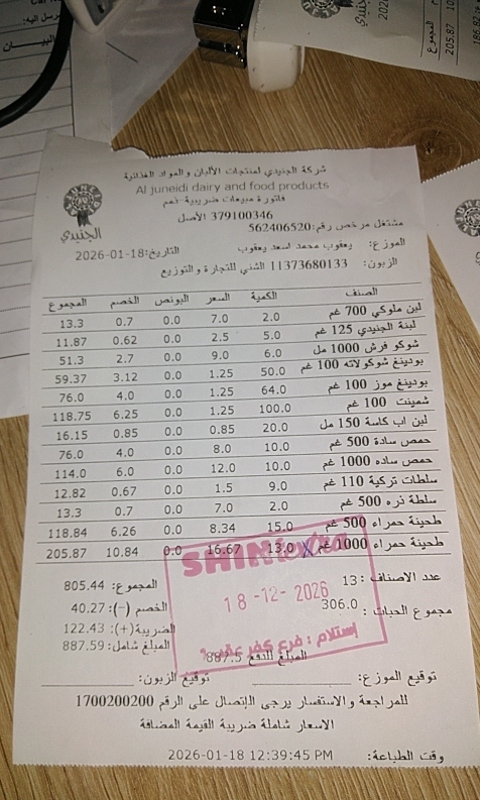 شركة الجنيدي لمنتجات الألبان والمواد الغذائية
Al juneidi dairy and food products
فاتورة مبيعات ضريبية-ذمم
379100346 الأصل
مشتغل مرخص رقم:562406520
الموزع: يعقوب محمد اسعد يعقوب التاريخ:2026-01-18
الزبون: 11373680133 الشني للتجارة والتوزيع
الجنيدي
الصنف الكمية السعر البونص الخصم المجموع
لبن ملوكي 700 غم 2.0 7.0 0.0 0.7 13.3
لبنة الجنيدي 125 غم 5.0 2.5 0.0 0.62 11.87
شوكو فرش 1000 مل 6.0 9.0 0.0 2.7 51.3
بودينغ شوكولاته 100 غم 50.0 1.25 0.0 3.12 59.37
بودينغ موز 100 غم 64.0 1.25 0.0 4.0 76.0
شمينت 100 غم 100.0 1.25 0.0 6.25 118.75
لبن اب كاسة 150 مل 20.0 0.85 0.0 0.85 16.15
حمص سادة 500 غم 10.0 8.0 0.0 4.0 76.0
حمص ساده 1000 غم 10.0 12.0 0.0 6.0 114.0
سلطات تركية 110 غم 9.0 1.5 0.0 0.67 12.82
سلطة ذره 500 غم 2.0 7.0 0.0 0.7 13.3
طحينة حمراء 500 غم 15.0 8.34 0.0 6.26 118.84
طحينة حمراء 1000 غم 13.0 16.67 0.0 10.84 205.87
عدد الاصناف : 13 المجموع: 805.44
مجموع الحبات : 306.0 الخصم (-): 40.27
الضريبة(+): 122.43
المبلغ شامل: 887.59
المبلغ للدفع 887.5
18-12-2026
إستلام : فرع كفر
توقيع الموزع: توقيع الزبون:
للمراجعة والاستفسار يرجى الإتصال على الرقم 1700200200
الاسعار شاملة ضريبة القيمة المضافة
وقت الطباعة: 2026-01-18 12:39:45 PM
البيان
المجموع
205.87